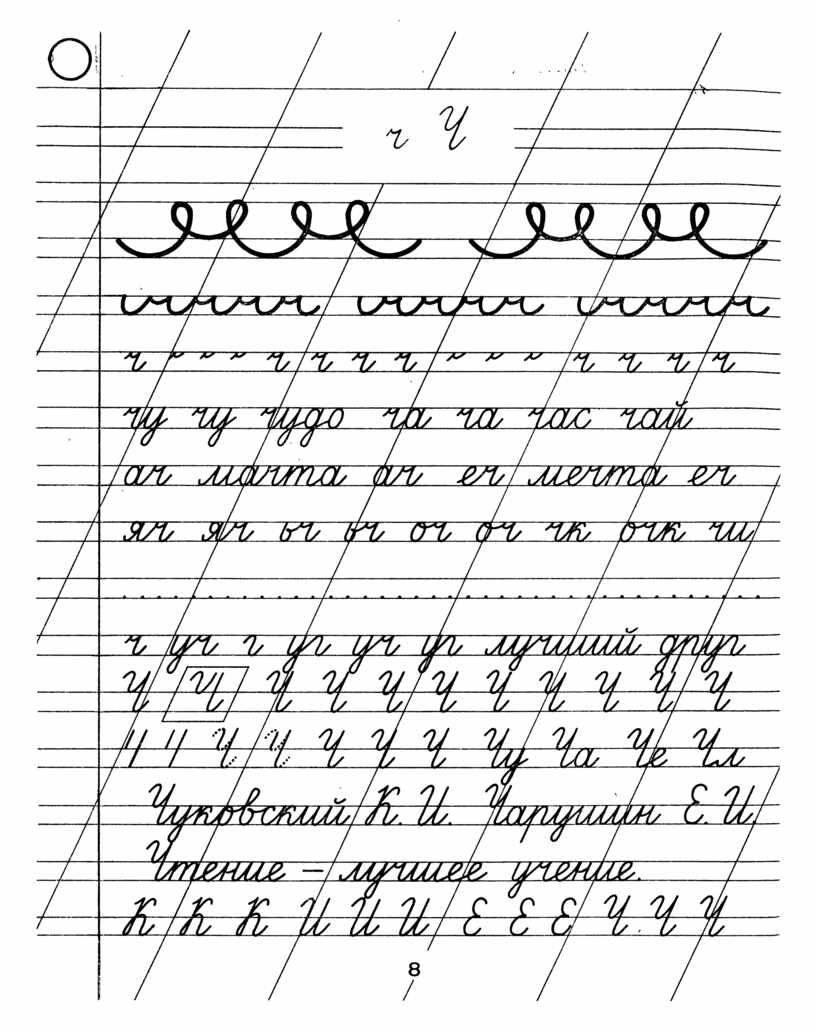 ч Ч
ч ч ч ч ч ч ч ч ч
чу чу чудо ча ча час чай
ач мачта ач еч мечта еч
яч яч ьч ьч оч оч чк очк чи
ч уч г уг уч уг лучший друг
Ч Ч Ч Ч Ч Ч Ч Ч Ч Ч Ч
Ч Ч Ч Ч Ч Чу Ча Че Чл
Чуковский К. И. Чарушин Е. И.
Чтение – лучшее учение.
К К К И И И Е Е Е Ч Ч Ч
8